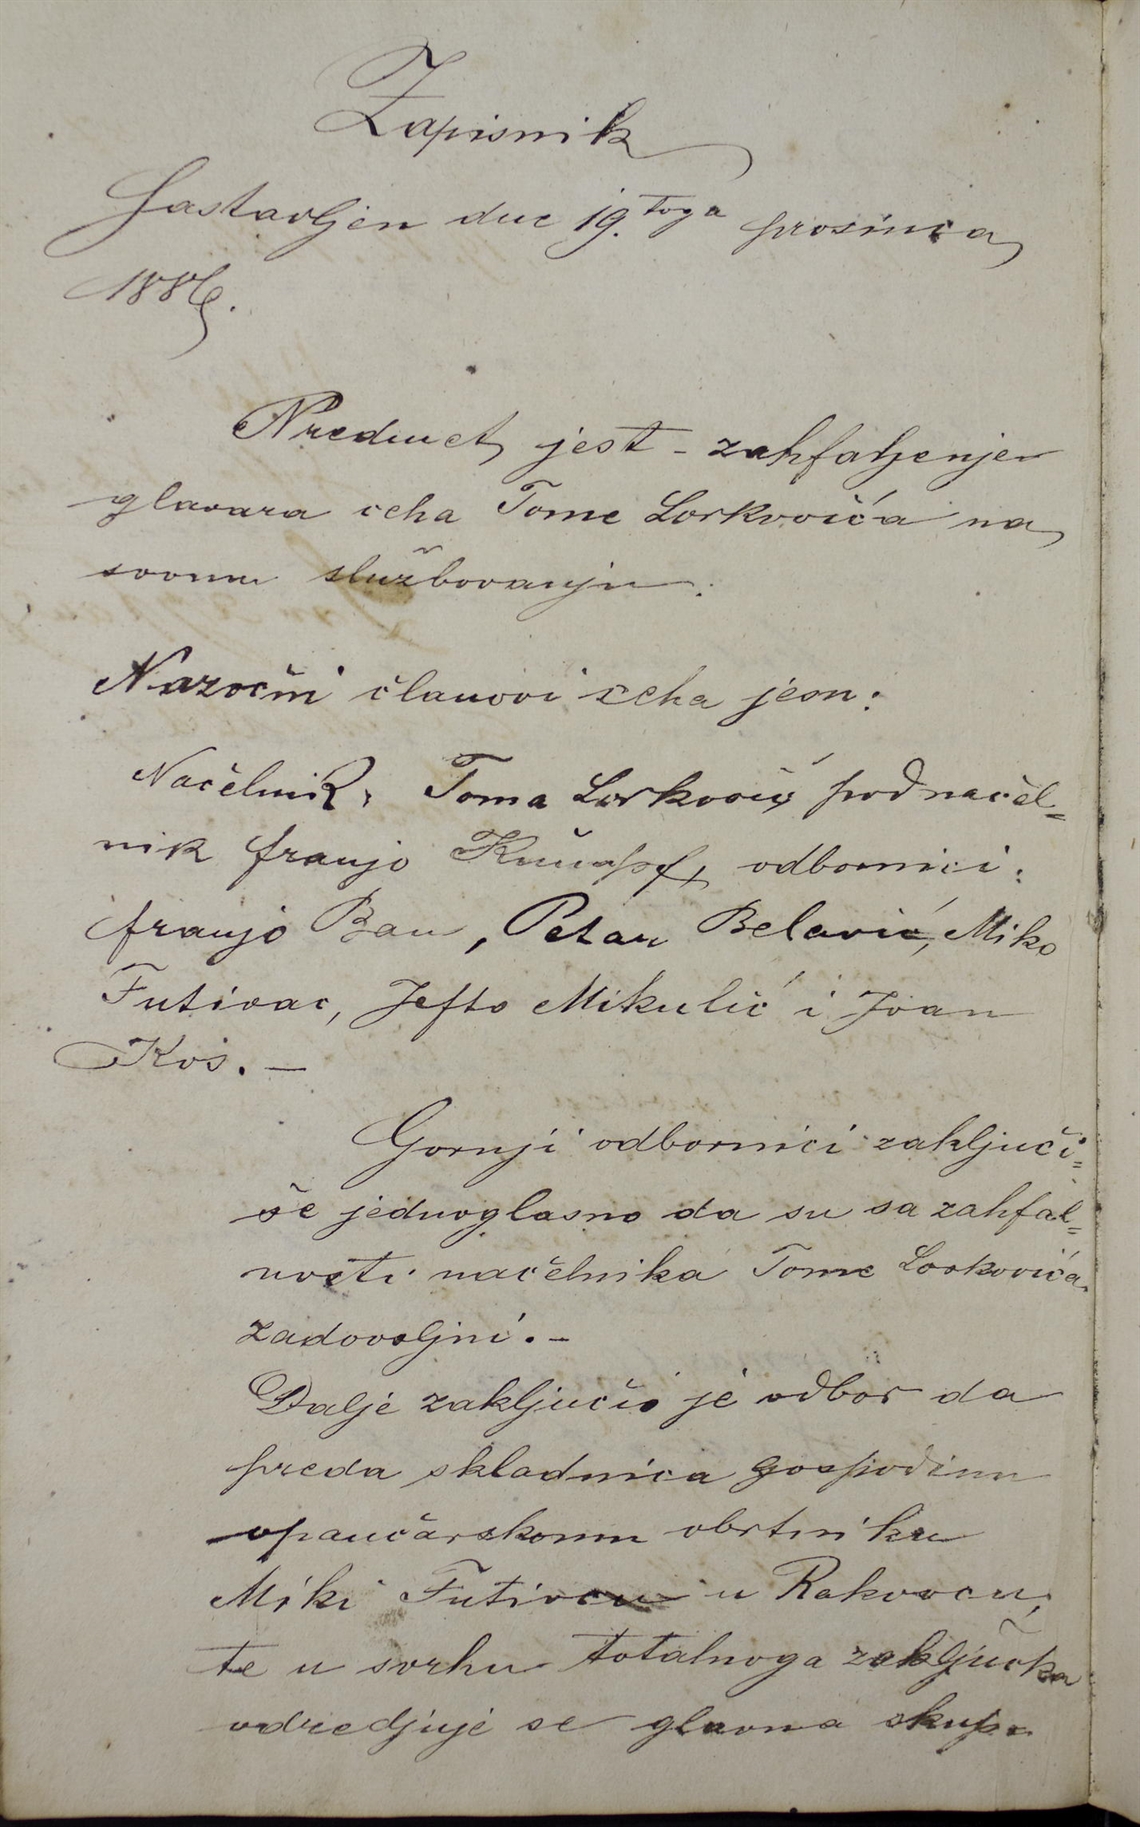 Zapisnik
Sastavljen dne 19.toga prosinca
1886.
Predmet jest - zahfaljenje
glavara ceha Tome Lorkovića na
svomu službovanju.
Nazočni članovi ceha jesu:
Načelnik, Toma Lorković, podnačel=
nik franjo odbornici:
franjo Ban, Petar Belavić, Miko
Futivac, Jefto Mikulić i Ivan
Kos. —
Gornji odbornici zaključi=
še jednoglasno da su sa zahfal=
nosti načelnika Tome Lorkovića
zadovoljni. -
Dalje zaključio je odbor da
preda skladnica gospodinu
opančarskomu obrtniku
Miki Futivcu u Rakovcu,
te u svrhu totalnoga zaključka
odredjuje se glavna skup-